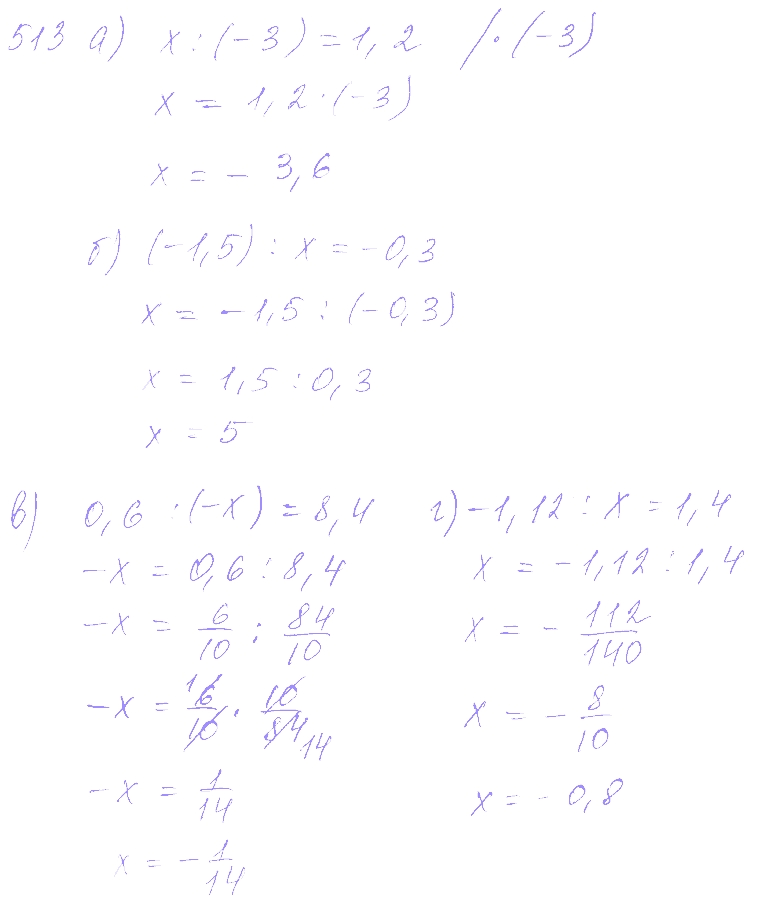 513 а) x : (-3) = 1,2 /·(-3)
x = 1,2·(-3)
x = - 3,6
б) (-1,5) : x = -0,3
x = -1,5 : (-0,3)
x = 1,5 : 0,3
x = 5
в) 0,6 : (-x) = 8,4
-x = 0,6 : 8,4
-x = 6/10 : 84/10
-x = 1 6/10 · 10/84 14
-x = 1/14
x = -1/14
г) -1,12 : x = 1,4
x = -1,12 : 1,4
x = - 112/140
x = - 8/10
x = - 0,8